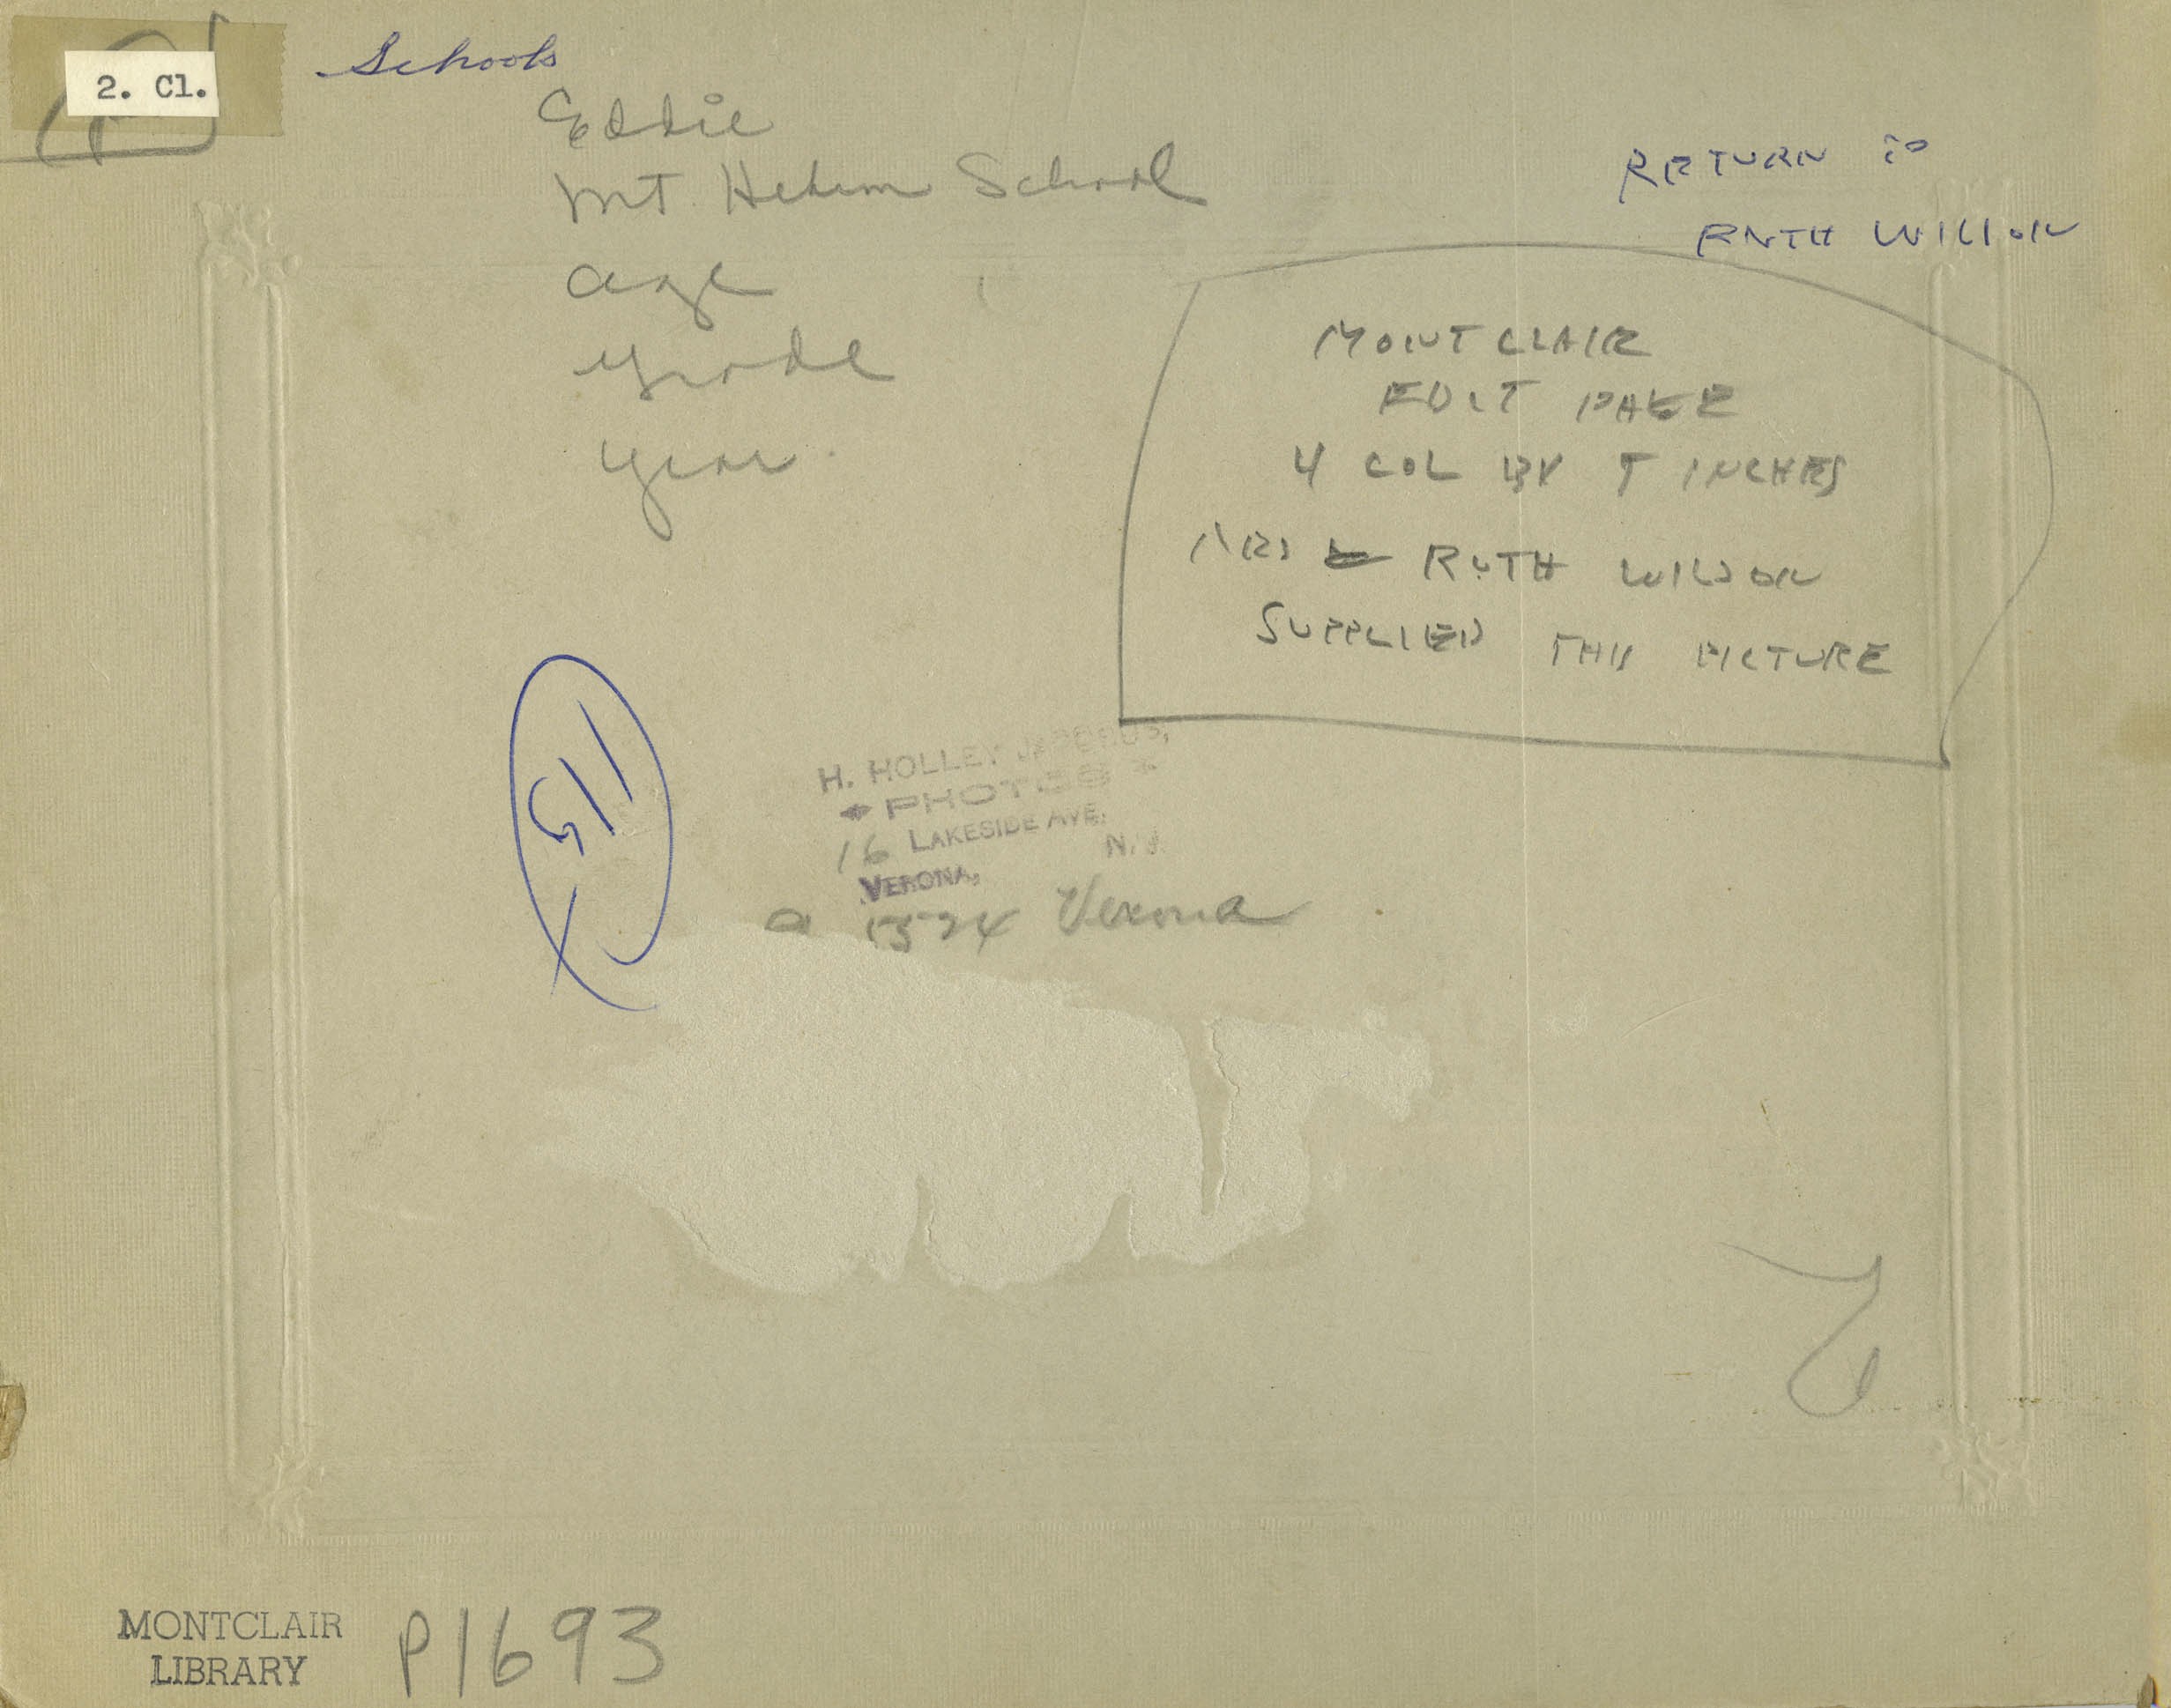 2. Cl.
Schools
Eddie
Mt. Hebron School
age
grade
year.
RETURN TO
RUTH WILSON
MONTCLAIR
EDIT PAGE
4 COL BY
INCHES
MRS RUTH WILSON
SUPPLIED THIS PICTURE
H. HOLLEY JACOBUS,
PHOTOS
16 LAKESIDE AVE.
VERONA, N. J.
1574 Verona
MONTCLAIR
LIBRARY
P1693